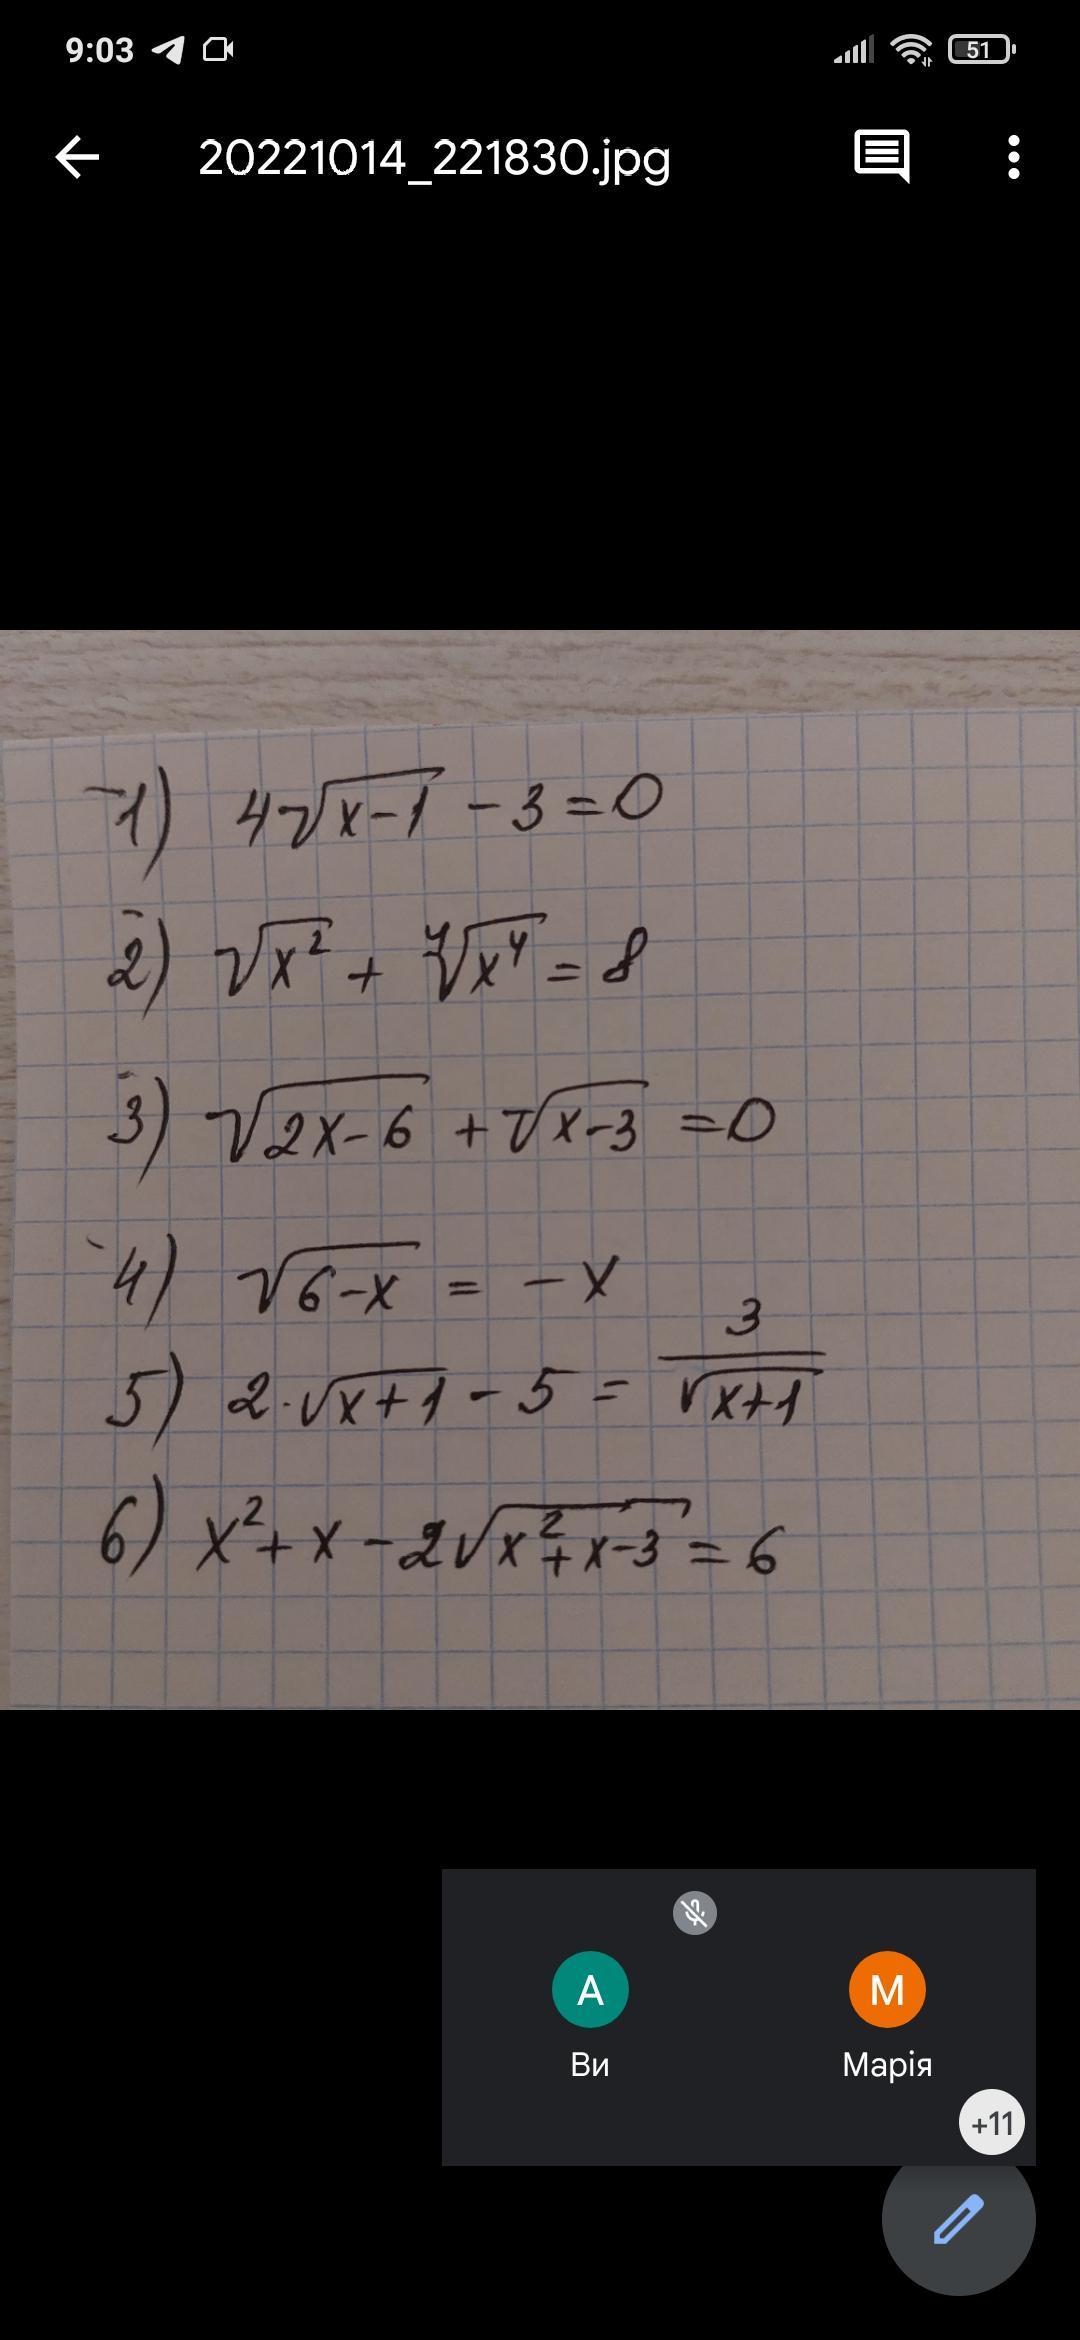 9:03 51
20221014_221830.jpg
1) 4√x-1 - 3 = 0
2) √x² + ∜x⁴ = 8
3) √2x-6 + √x-3 = 0
4) √6-x = -x
5) 2·√x+1 - 5 = 3/√x+1
6) x²+x-2√x²+x-3 = 6
А М
Ви Марія
+11